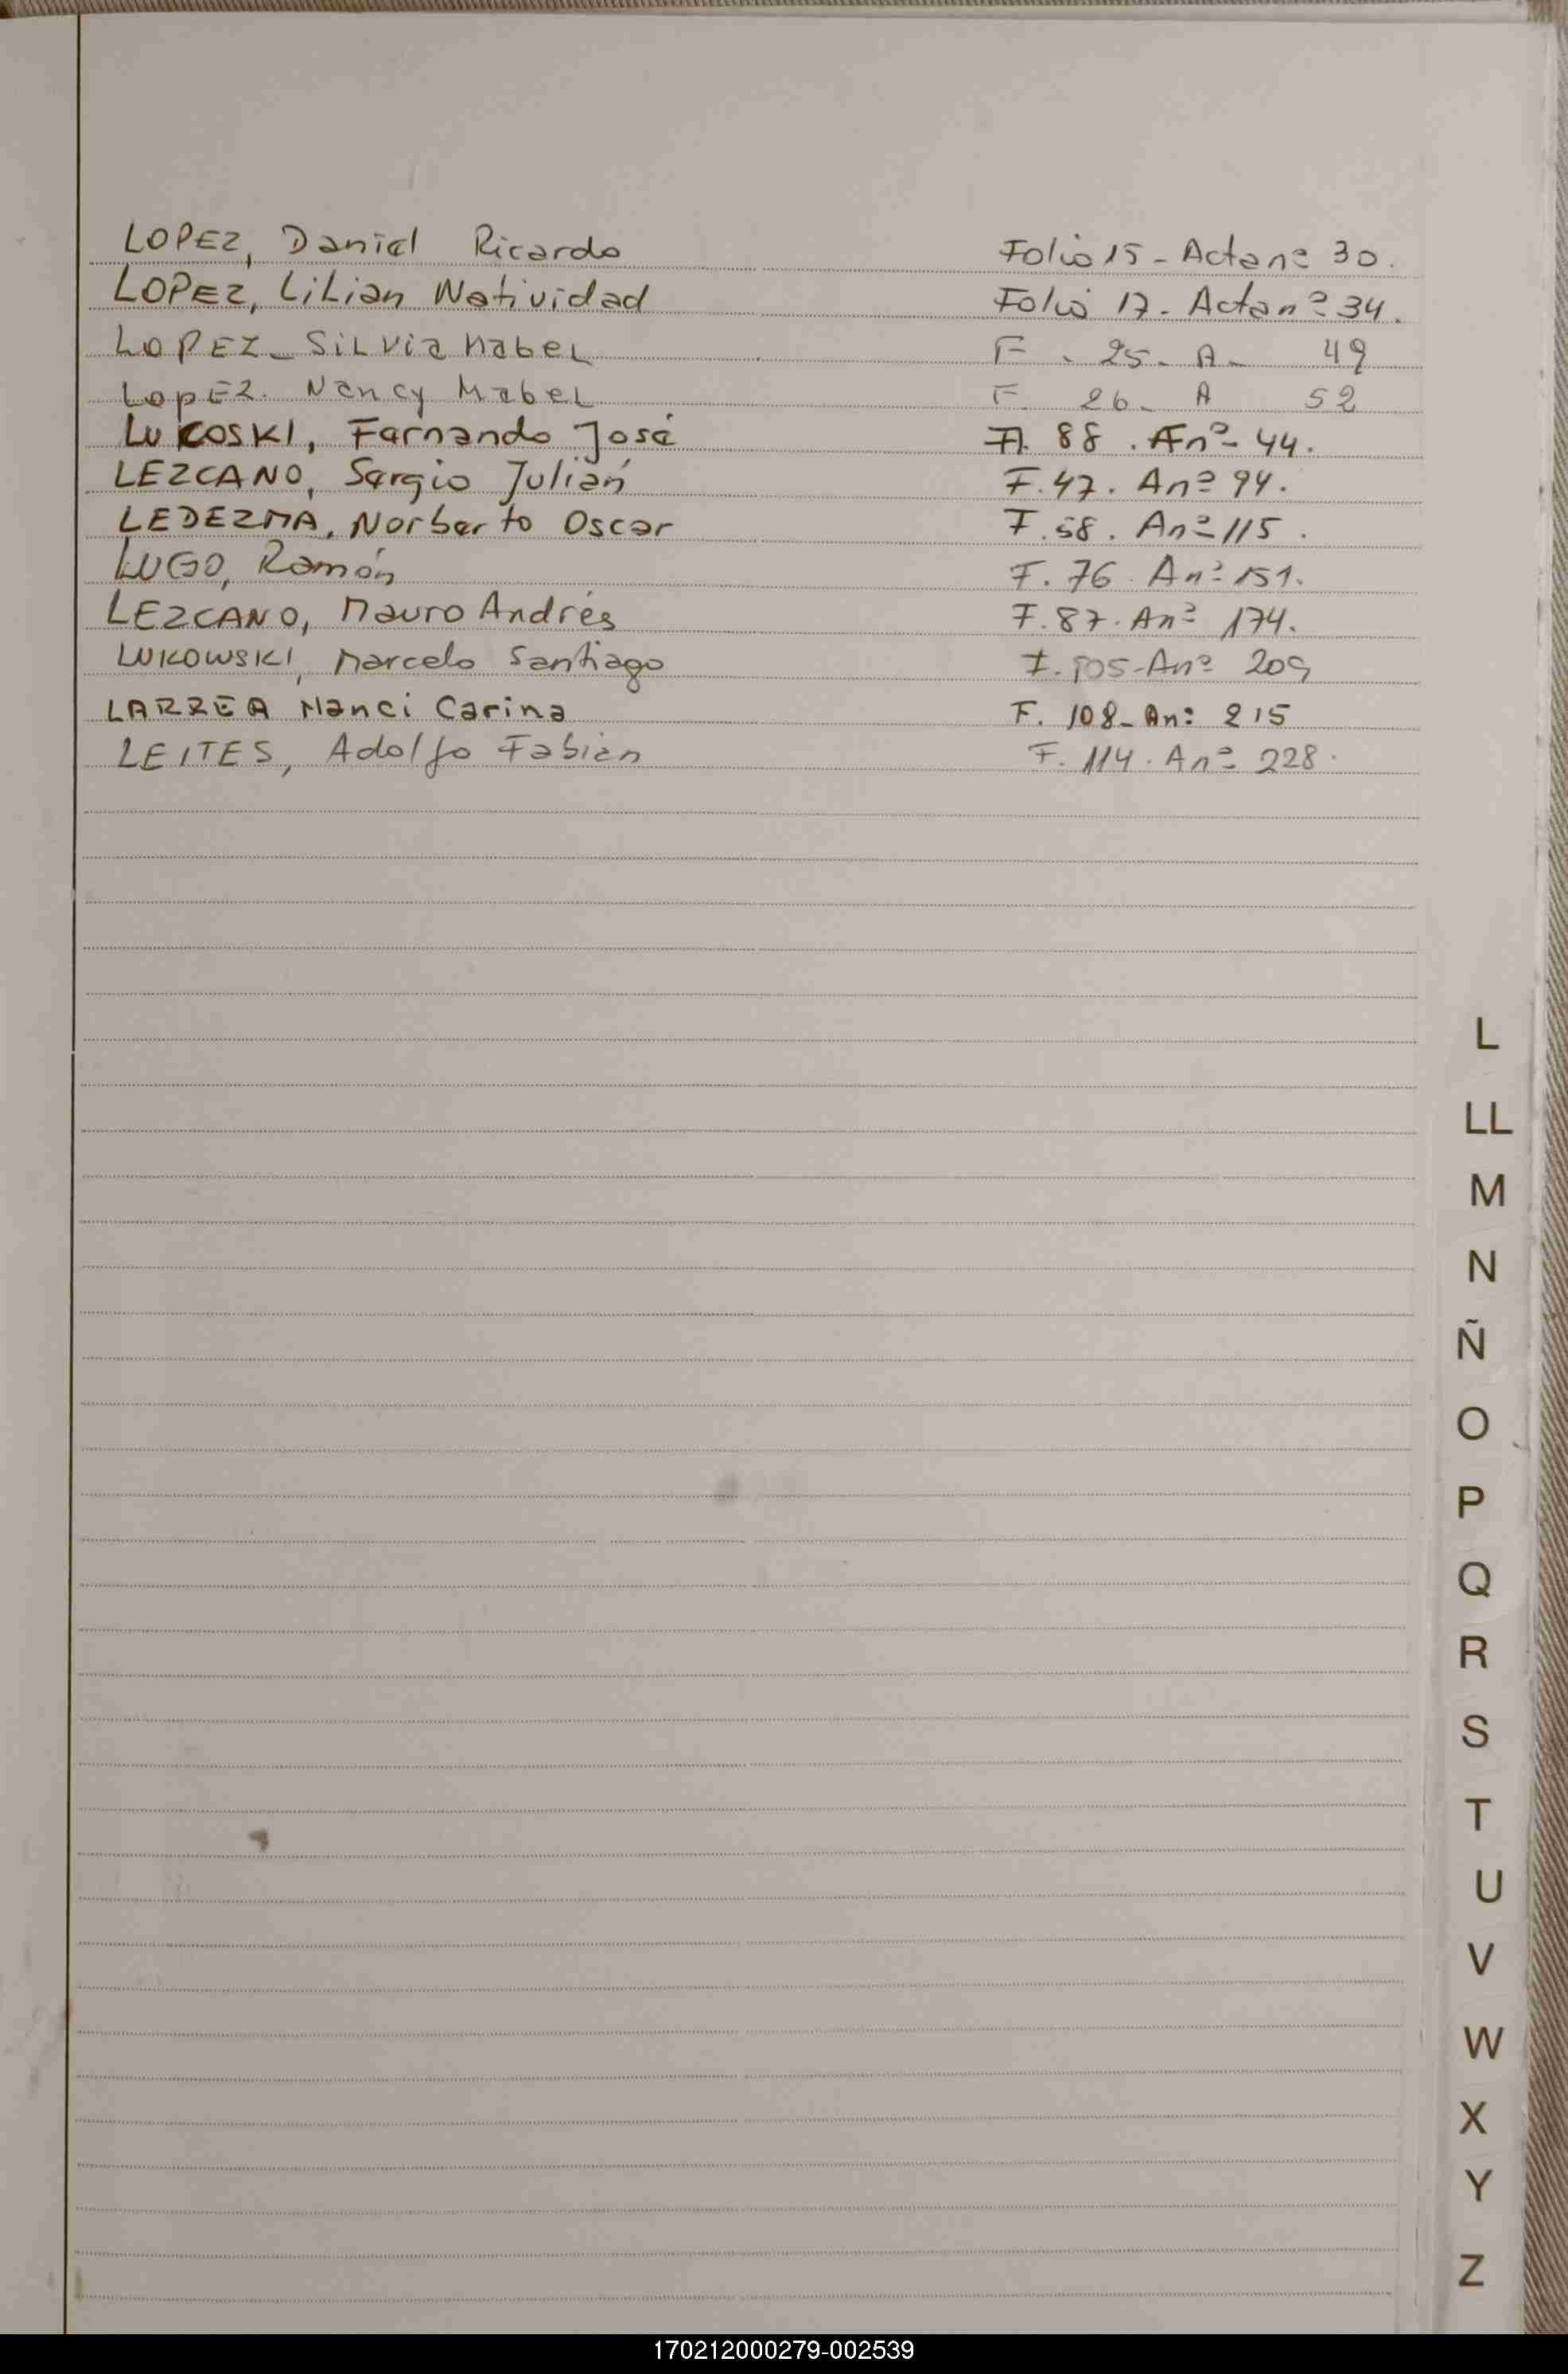 LOPEZ, Daniel Ricardo Folio 15 - Acta nº 30.
LOPEZ, Lilian Natividad Folio 17 - Acta nº 34.
LOPEZ - Silvia Mabel F - 25 - A - 49
LOPEZ. Nancy Mabel F. 26 - A 52
LUKOSKI, Fernando José A. 88 . Fnº 44.
LEZCANO, Sergio Julián F. 47. Anº 94.
LEDEZMA, Norberto Oscar F. 58. Anº 115.
LUGO, Ramón F. 76. Anº 151.
LEZCANO, Mauro Andrés F. 87. Anº 174.
LUKOWSKI, Marcelo Santiago F. 105 - Anº 209
LARREA Nanci Carina F. 108 - An: 215
LEITES, Adolfo Fabián F. 114. Anº 228.
L
LL
M
N
Ñ
O
P
Q
R
S
T
U
V
W
X
Y
Z
170212000279-002539